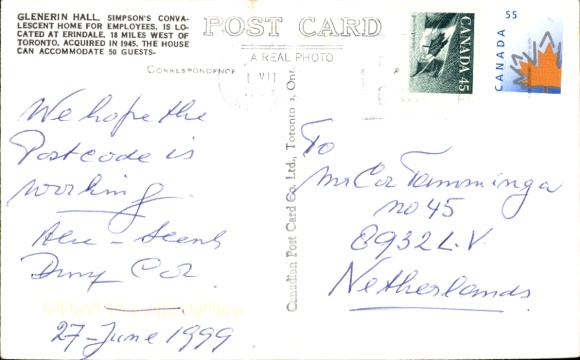 GLENERIN HALL, SIMPSON'S CONVA-
LESCENT HOME FOR EMPLOYEES, IS LO-
CATED AT ERINDALE, 18 MILES WEST OF
TORONTO. ACQUIRED IN 1945, THE HOUSE
CAN ACCOMMODATE 50 GUESTS-
POST CARD
A REAL PHOTO
CORRESPONDENCE
VII
CANADA 45
55
CANADA
Canadian Post Card Co. Ltd., Toronto, Ont.
We hope the
Postcode is
working.
Cor.
27-June 1999
To
Mr Cor Tamminga
no 45
8932 L.V.
Netherlands.